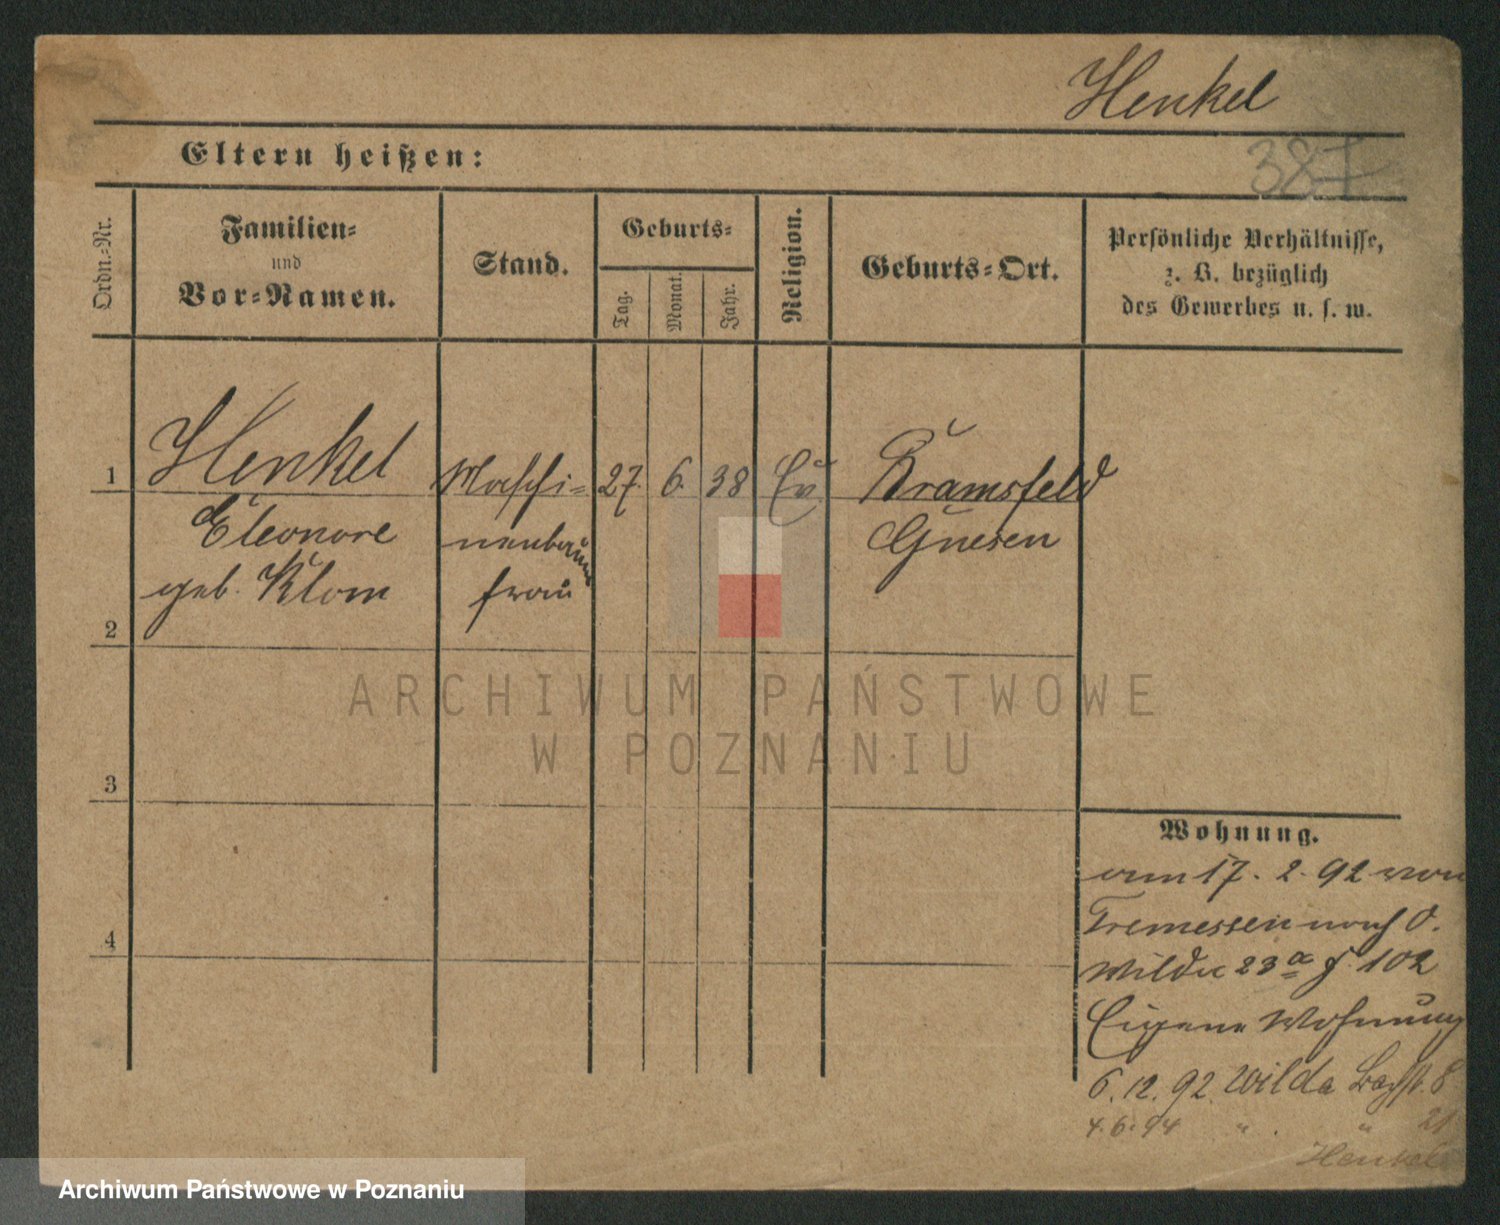 Henkel
387
Eltern heißen:
Ordn.-Nr.
Familien-
und
Vor-Namen.
Stand.
Geburts-
Tag.
Monat.
Jahr.
Religion.
Geburts-Ort.
Persönliche Verhältnisse,
z. B. bezüglich
des Gewerbes u. s. w.
1
Henkel
Eleonore
geb. Klom
Maschi-
nenbauers
frau
27. 6. 38
Ev
Bramsfeld
Gnesen
2
3
4
ARCHIWUM PAŃSTWOWE
W POZNANIU
Wohnung.
am 17. 2. 92 von
Tremessen nach O.
Wilda 23 a 102
Eigene Wohnung
6. 12. 92. Wilda 8
4. 6. 94 " " 21
Henkel
Archiwum Państwowe w Poznaniu